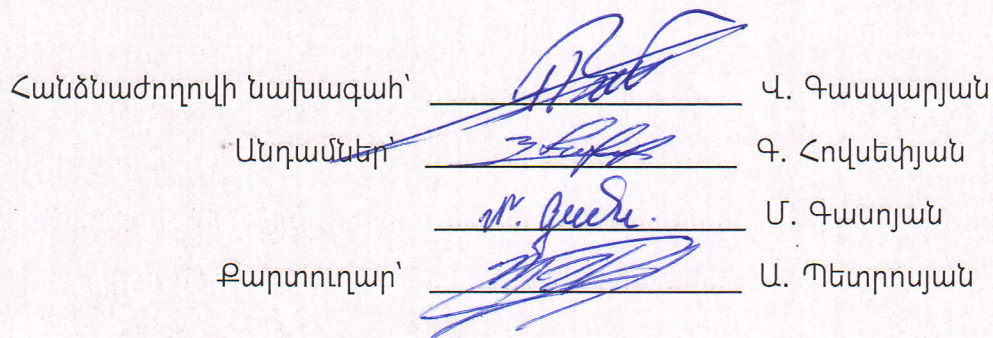 Հանձնաժողովի նախագահ՝ Վ. Գասպարյան
Անդամներ՝ Գ. Հովսեփյան
Մ. Գասոյան
Քարտուղար՝ Ա. Պետրոսյան